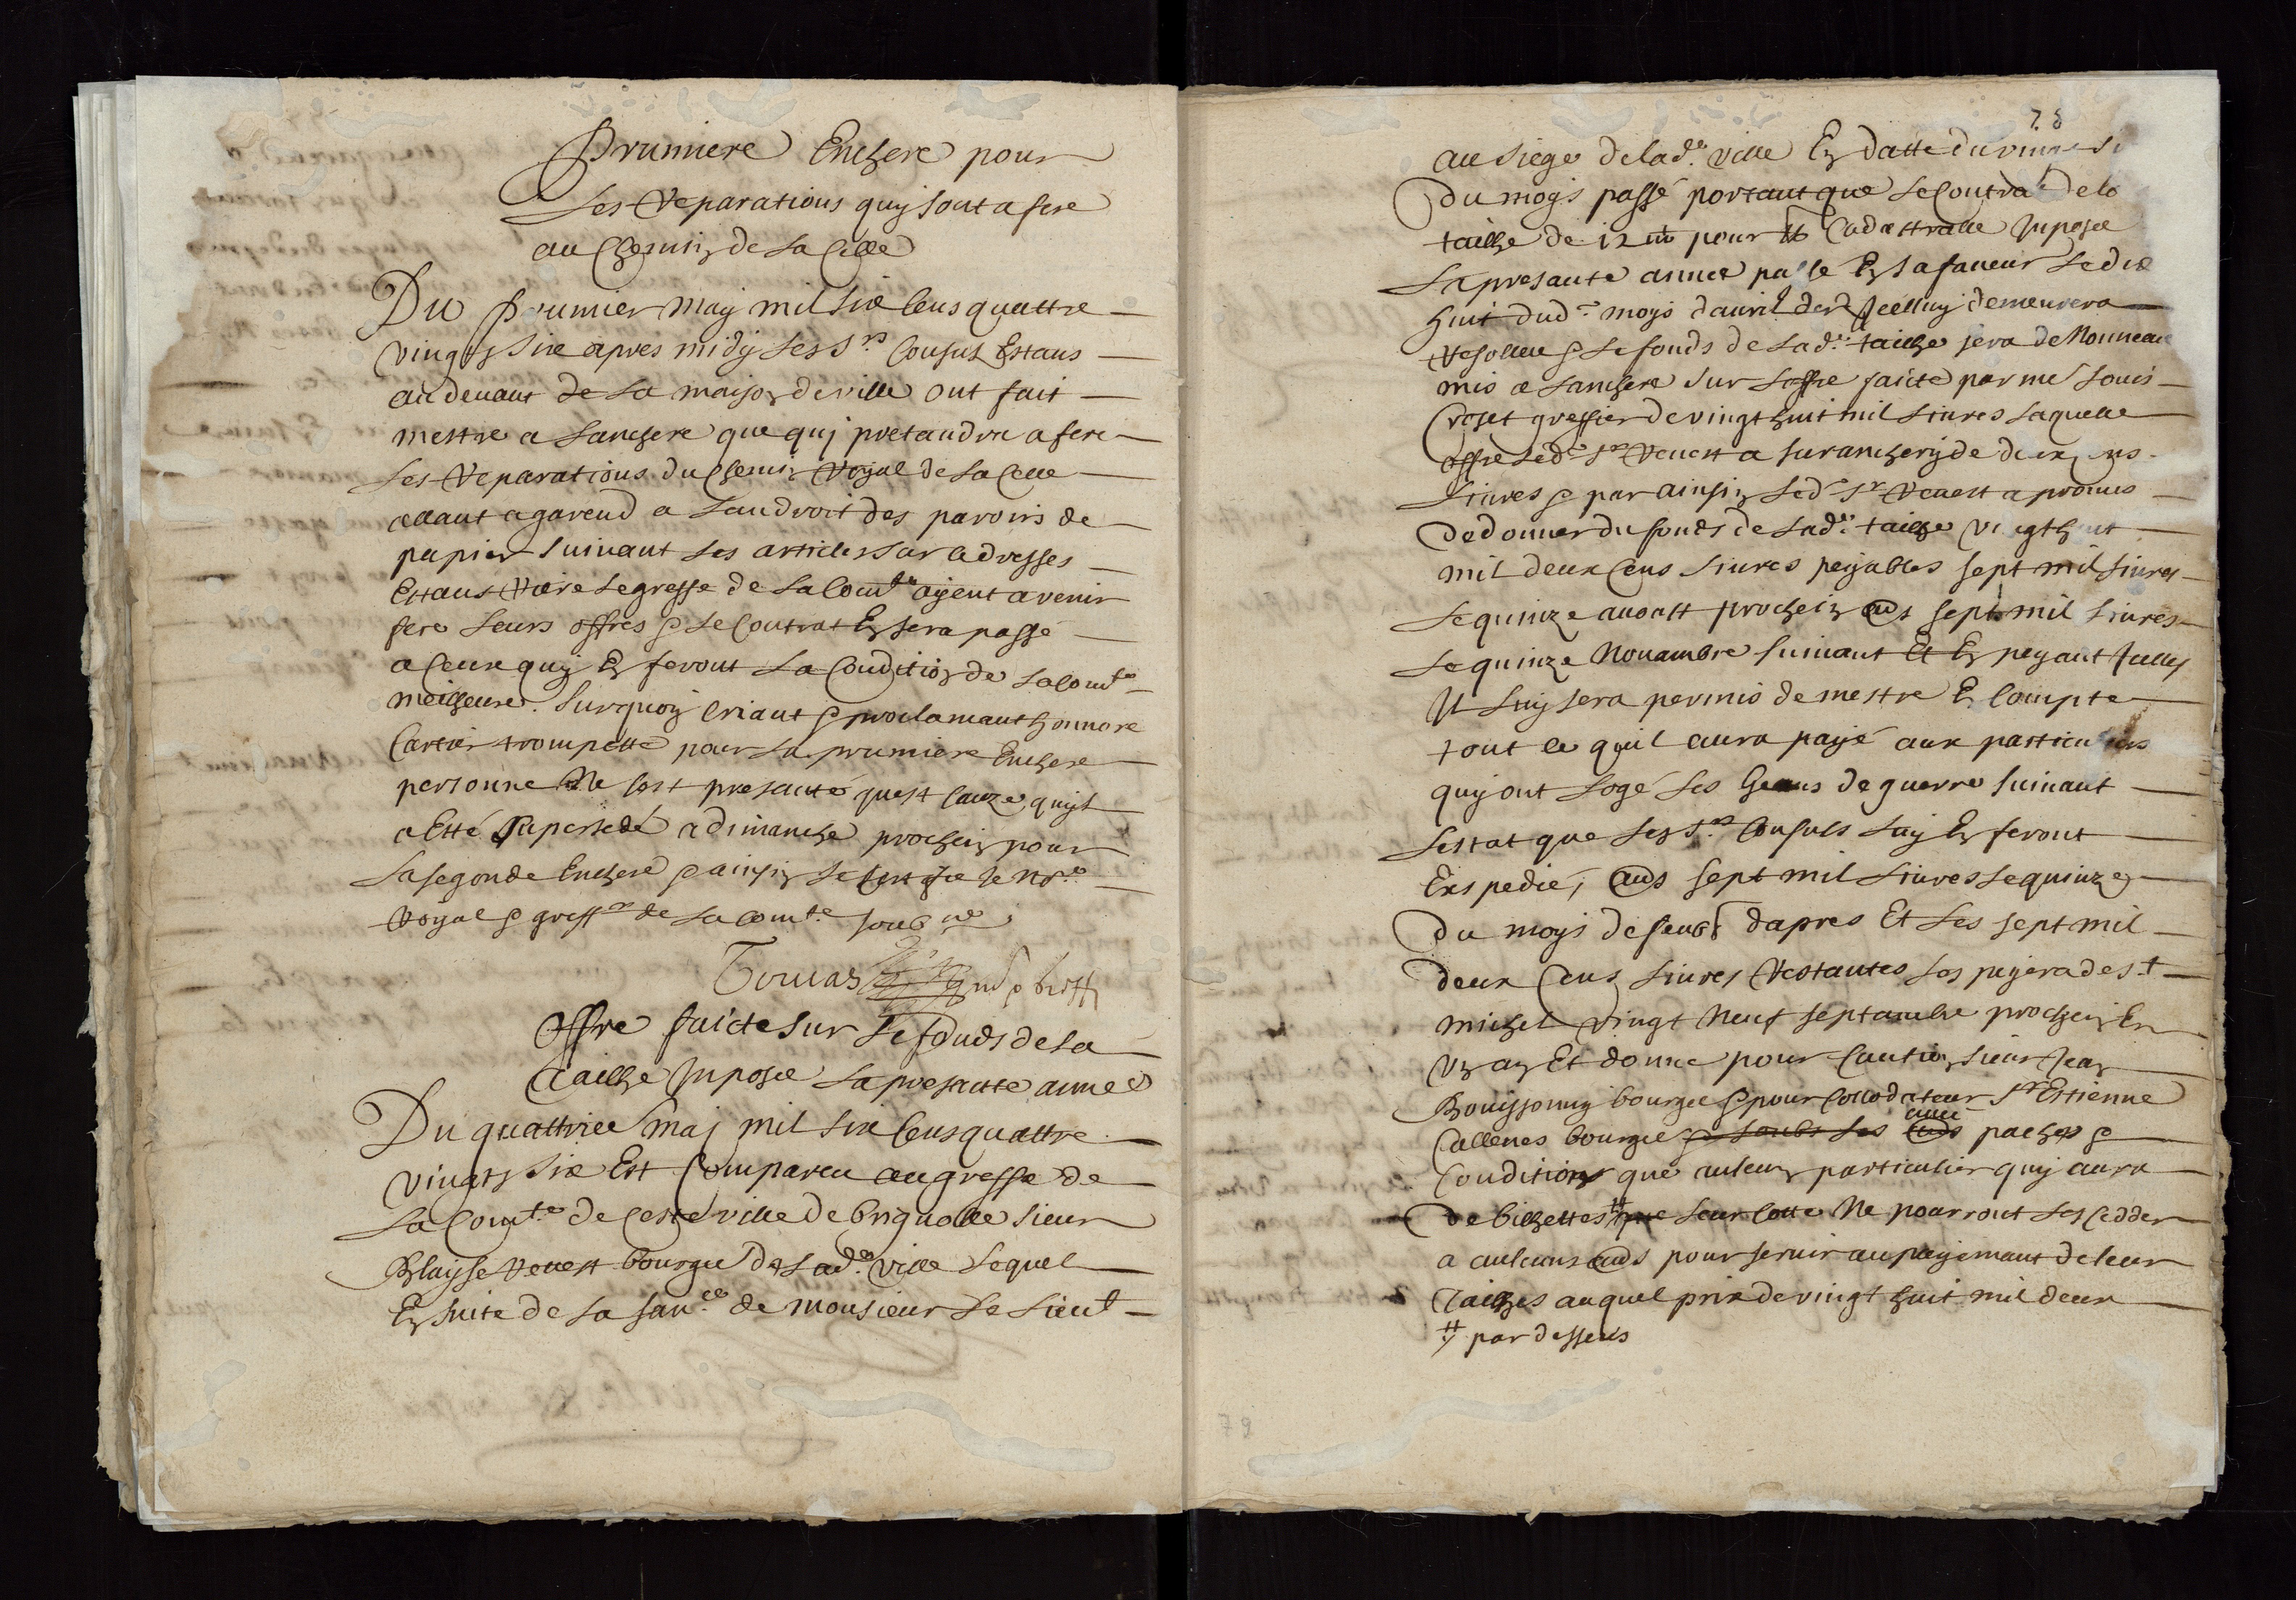 Prumiere Enchere pour
Les Reparations quy sont a fere
au Chemin de La Celle
Du prumier may mil six Cens quattre
vingts six apres midy Les Srs Consuls Estans
au devant de La maison de ville ont fait
mettre a Lanchere que quj pretandra a fere
Les Reparations du Chemin Royal de La Celle
allant a gareud a Landroit des paroirs de
papier suivant Les articles sur a dresses
Estans Riere Le greffe de La Comté ayent a venir
fere Leurs offres & Le Contrat En sera passé
a Ceux quy En feront La Condition de La Comté
meilheure. Surquoy Criant & proclamant honnore
Cartier trompette pour La prumiere Enchere
personne Ne sest presanté quest Cauze quyl
a Esté supersedé a dimanche prochein pour
La segonde Enchere & ainsin Le Certifie Je Nore
Royal & greffr de La Comté soubné
offre faicte sur Le fonds de La
Tailhe Inposee La presante annee
Du quattrie maj mil six Cens quattre
vingts six Est Compareu au greffe de
La Comté de Ceste ville de brignolle sieur
Blayse Venest bourgs de Lade ville Lequel
En suite de La sance de monsieur Le Lieut
78
au siege de lade ville En datte du
du moys passé portant que Le Contrat de la
tailhe de pour Cadastralle Inposee
La presante annee passé En sa faveur Le dix
huit dud moys davril der Jcelluy demeurera
Resollue & Le fonds de Lade tailhe sera de Nouveau
mis a Lanchere sur Loffre faicte par me Louis
Croset greffier de vingt huit mil Livres Laquelle
offre Led Sr Venest a surancherj de deux cens
Livres & par ainsin Led Sr Venest a promis
de donner du fonds de Lade tailhe vingt huit
mil deux Cens Livres peyables sept mil Livres
Le quinze auoust prochein sept mil Livres
Le quinze Nouambre suivant Et En peyant Jcelles
Il Luy sera permis de mettre En Compte
tout ce quil aura payé aux particuliers
quy ont Logé Les Geans de guerre suivant
Lestat que Les Srs Consuls Luy En feront
Expedié, sept mil Livres Le quinze
du moys de feuer dapres Et Les sept mil
deux Cens Livres Restantes Les peyera de St
michel vingt Neuf septambre prochein En
un an Et donne pour Caution sieur Jean
Bouissonny bourgs & pour Collodateur Sr Estienne
Callenes bourgs & soubs Les avec paches &
Conditions que auleun particulier quy aura
de bilhettes # que Leur Cotte Ne pourront Les Cedder
a auleuns pour servir au payemant de leur
Tailhes auquel prix de vingt huit mil deux
# par dessus
78